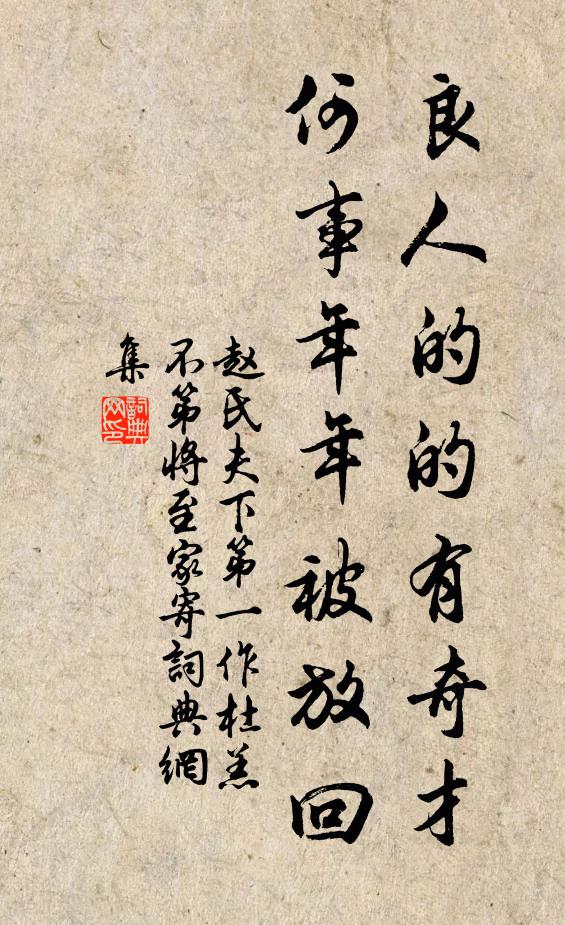 良人的的有奇才
何事年年被放回
赵氏夫下第一作杜羔
不第将至家寄詞典網
集
詞典網印